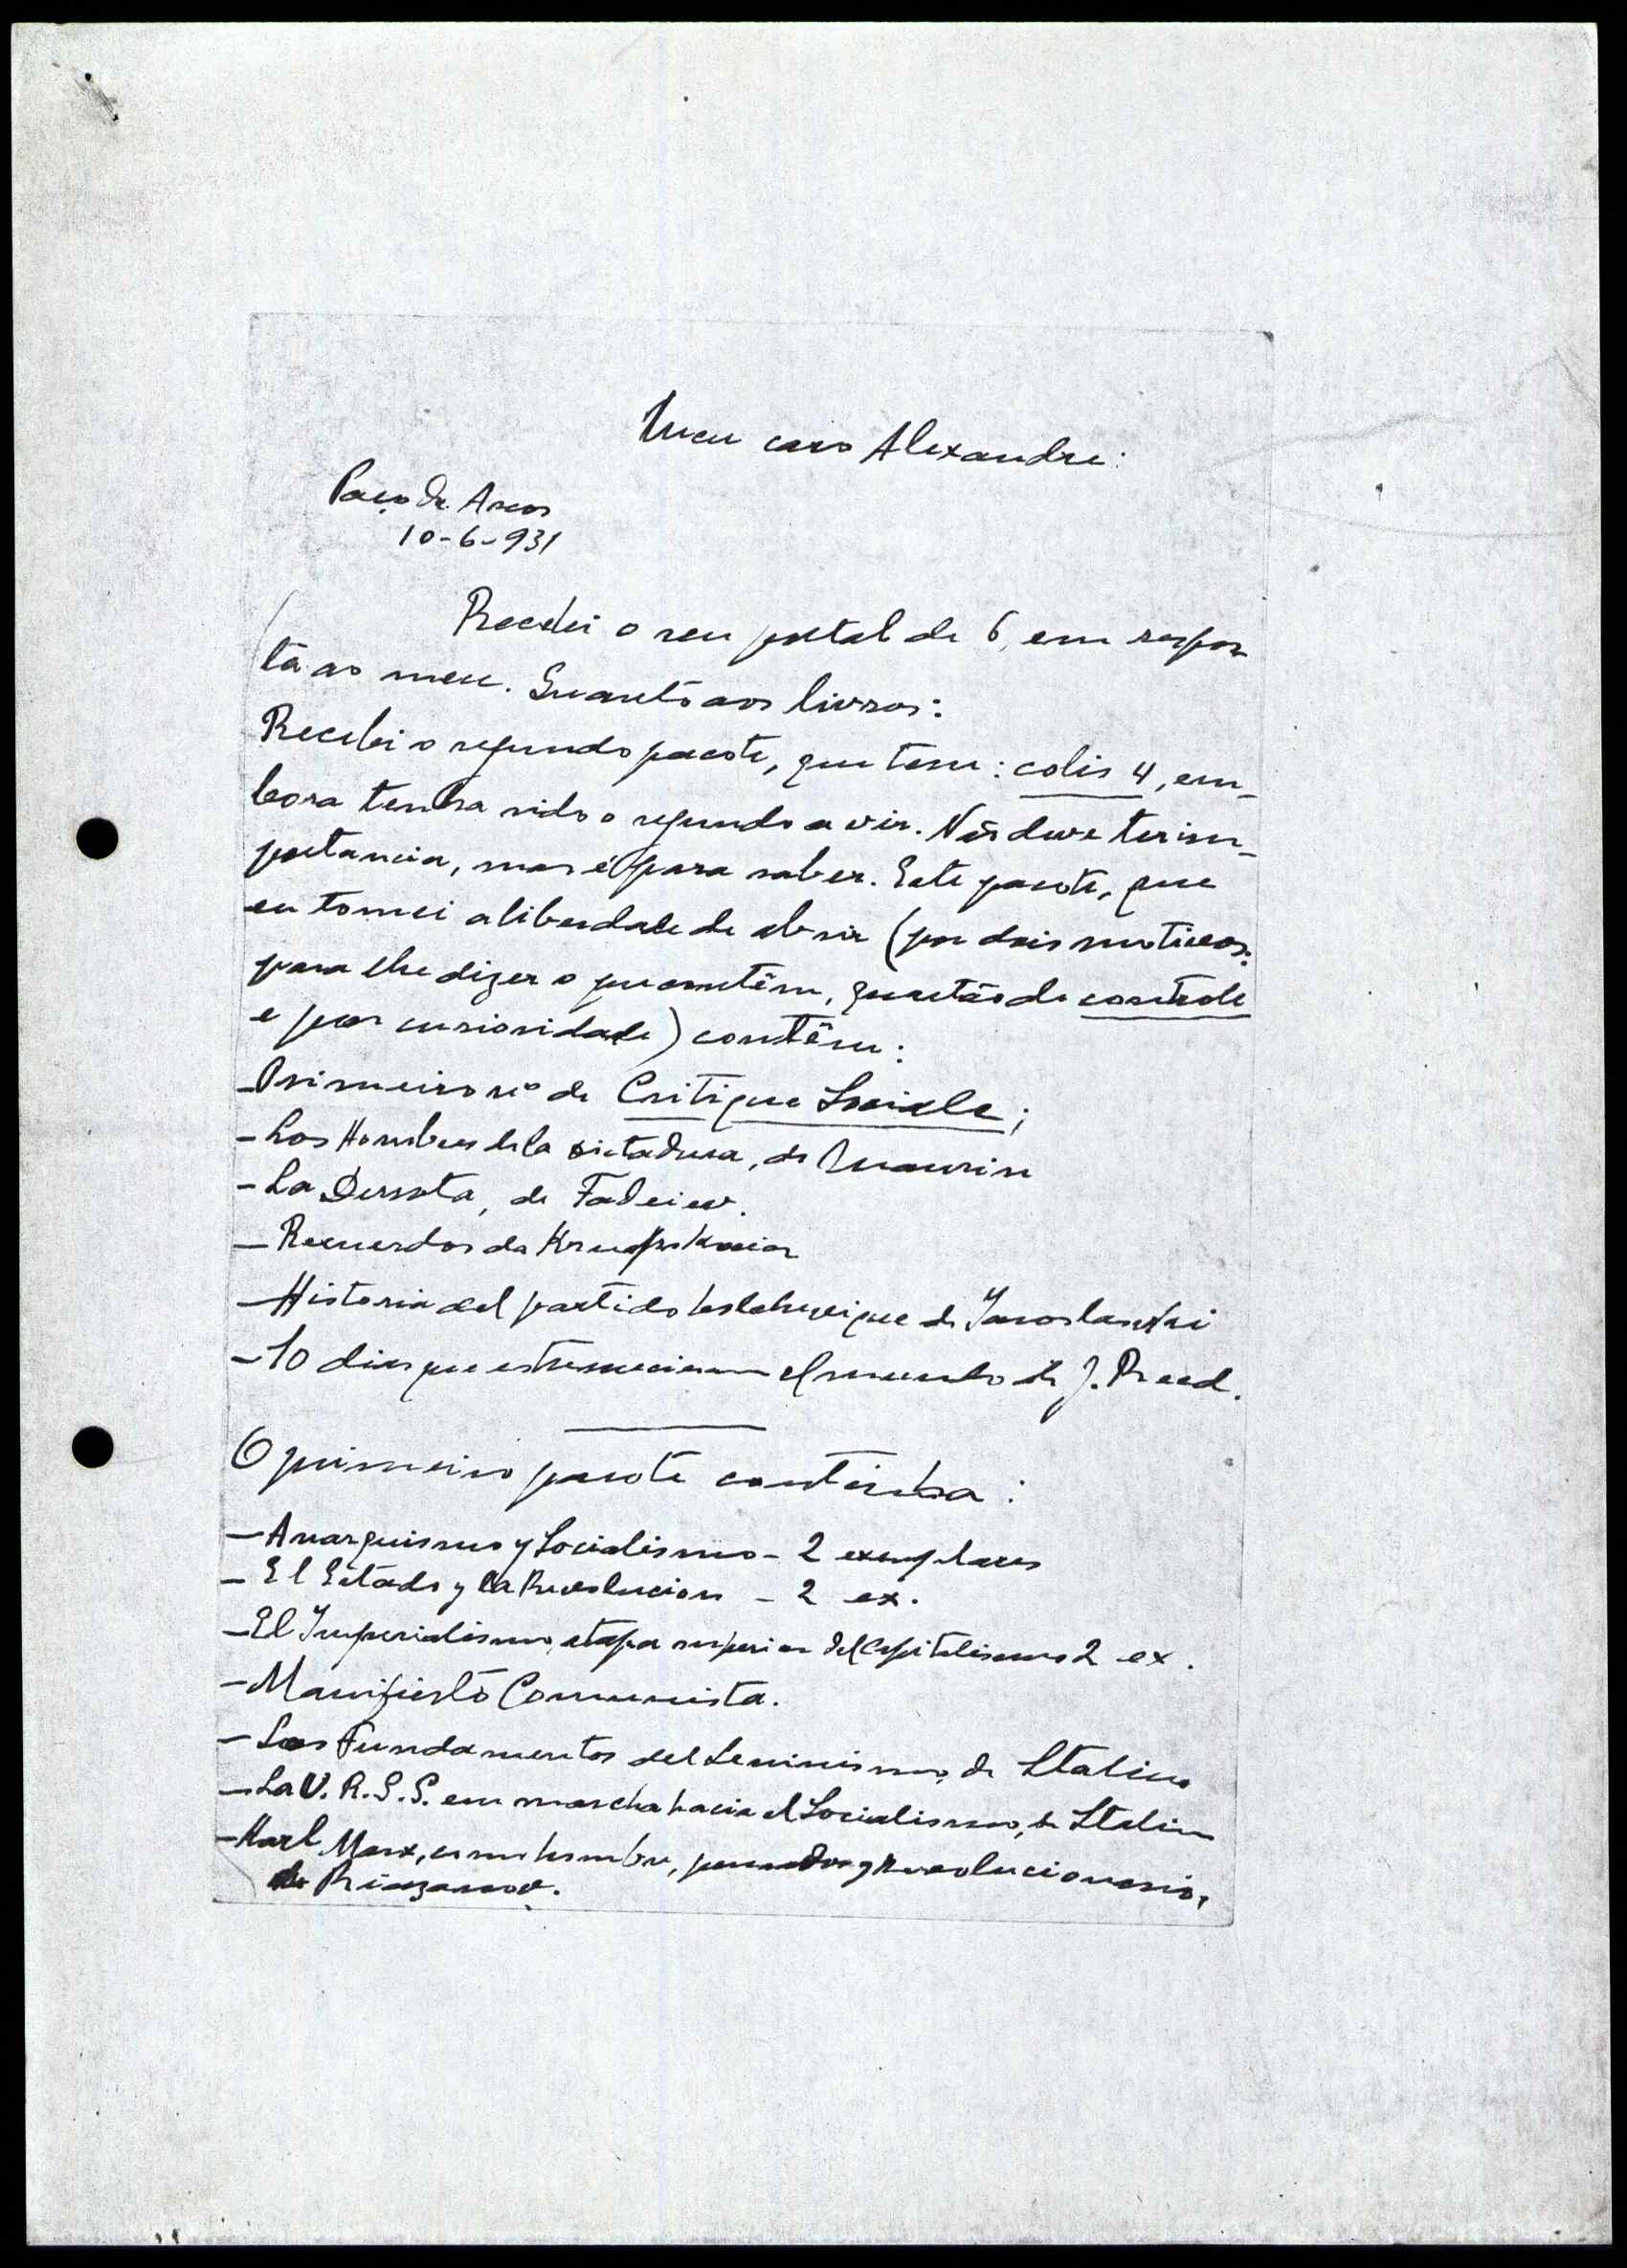 Meu caro Alexandre:
Paço de Arcos
10-6-931
Recebi o seu postal de 6, em respos
ta ao meu. Quanto aos livros:
Recebi o segundo pacote, que tem: colis 4, em-
bora tenha sido o segundo a vir. Não deve ter im-
portancia, mas é para saber. Este pacote, que
eu tomei a liberdade de abrir (por dois motivos:
para lhe dizer o que contêm, questão de controle
e por curiosidade) contêm:
- Primeiro nº de Critique Sociale;
- Los Hombres de la Dictadura, de Maurin
- La Derrota, de Fadeiew.
- Recuerdos da Krupskaia
- Historia del partido bolchevique de Yaroslavski
- 10 dias que estremecieron el mundo de J. Reed.
O primeiro pacote continha:
- Anarquismo y Socialismo - 2 exemplares
- El Estado y la Revolucion - 2 ex.
- El Imperialismo, etapa superior del Capitalismo 2 ex.
- Manifiesto Comunista.
- Los Fundamentos del Leninismo, de Staline
- La U.R.S.S. em marcha hacia el Socialismo, de Stalin
- Karl Marx, como hombre, pensador y revolucionario,
de Riazanov.